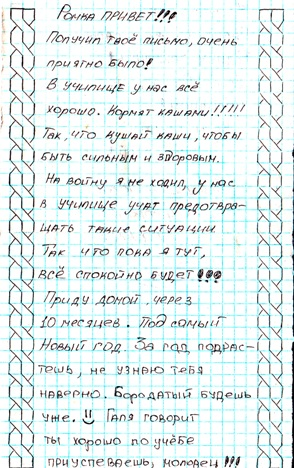 Ромка ПРИВЕТ!!!
Получил твоё письмо, очень
приятно было!
В училище у нас всё
хорошо. Кормят кашами!!!!!
Так, что кушай каши, чтобы
быть сильным и здоровым.
На войну я не ходил, у нас
в училище учат предотвра-
щать такие ситуации
Так что пока я тут,
всё спокойно будет!!!
Приду домой, через
10 месяцев. Под самый
Новый год. За год подрас-
тешь, не узнаю тебя
наверно. Бородатый будешь
уже. Галя говорит
ты хорошо по учёбе
приуспеваешь, молодец!!!